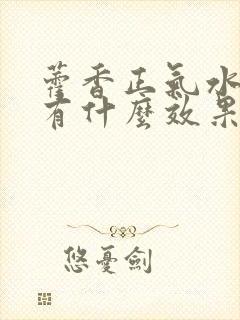 藿香正氣水
有什麼效果
悠憂劍